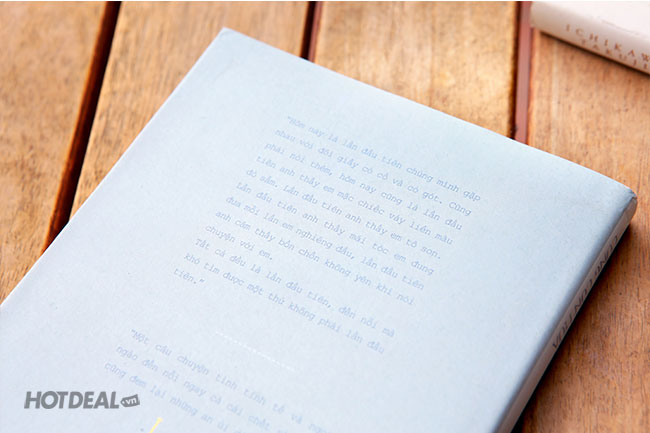 "Hôm nay là lần đầu tiên chúng mình gặp
nhau với đôi giầy có cổ và có gót. Cũng
phải nói thêm, hôm nay cũng là lần đầu
tiên anh thấy em mặc chiếc váy liền màu
đỏ sẫm. Lần đầu tiên anh thấy em tô son.
Lần đầu tiên anh thấy mái tóc em đung
đưa mỗi lần em nghiêng đầu, lần đầu tiên
anh cảm thấy bồn chồn không yên khi nói
chuyện với em.
Tất cả đều là lần đầu tiên, đến nỗi mà
khó tìm được một thứ không phải lần đầu
tiên."
"Một câu chuyện tình tinh tế và
ngào đến nỗi ngay cả cái chết
cũng đem lại những an ủi
ICHIKAW
HOTDEAL.vn